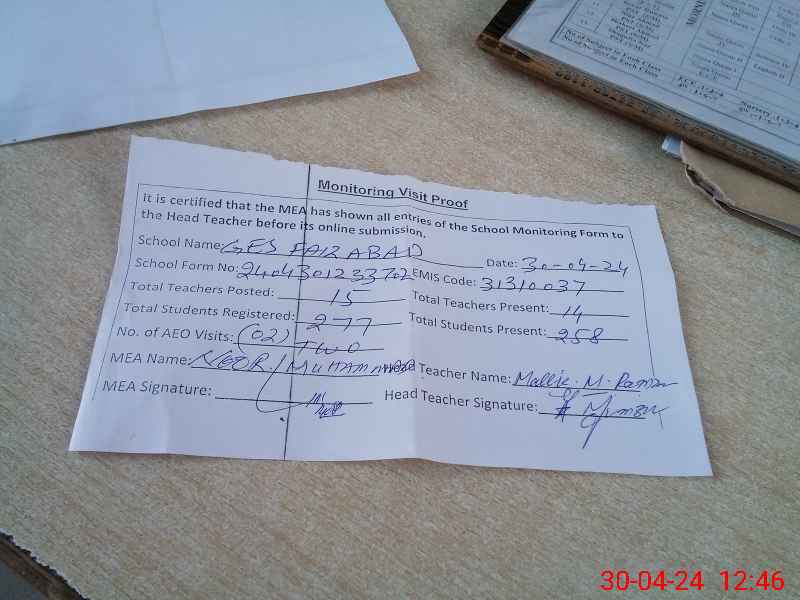 Monitoring Visit Proof
It is certified that the MEA has shown all entries of the School Monitoring Form to
the Head Teacher before its online submission.
School Name: GES FAIZABAD Date: 30-04-24
School Form No: 2404301233702 EMIS Code: 31310037
Total Teachers Posted: 15 Total Teachers Present: 14
Total Students Registered: 277 Total Students Present: 258
No. of AEO Visits: (02) TWO
MEA Name: NOOR MUHAMMAD Head Teacher Name: M.
MEA Signature: Head Teacher Signature:
No of Subject in Each Class
No of Subject in Each Class
30-04-24 12:46